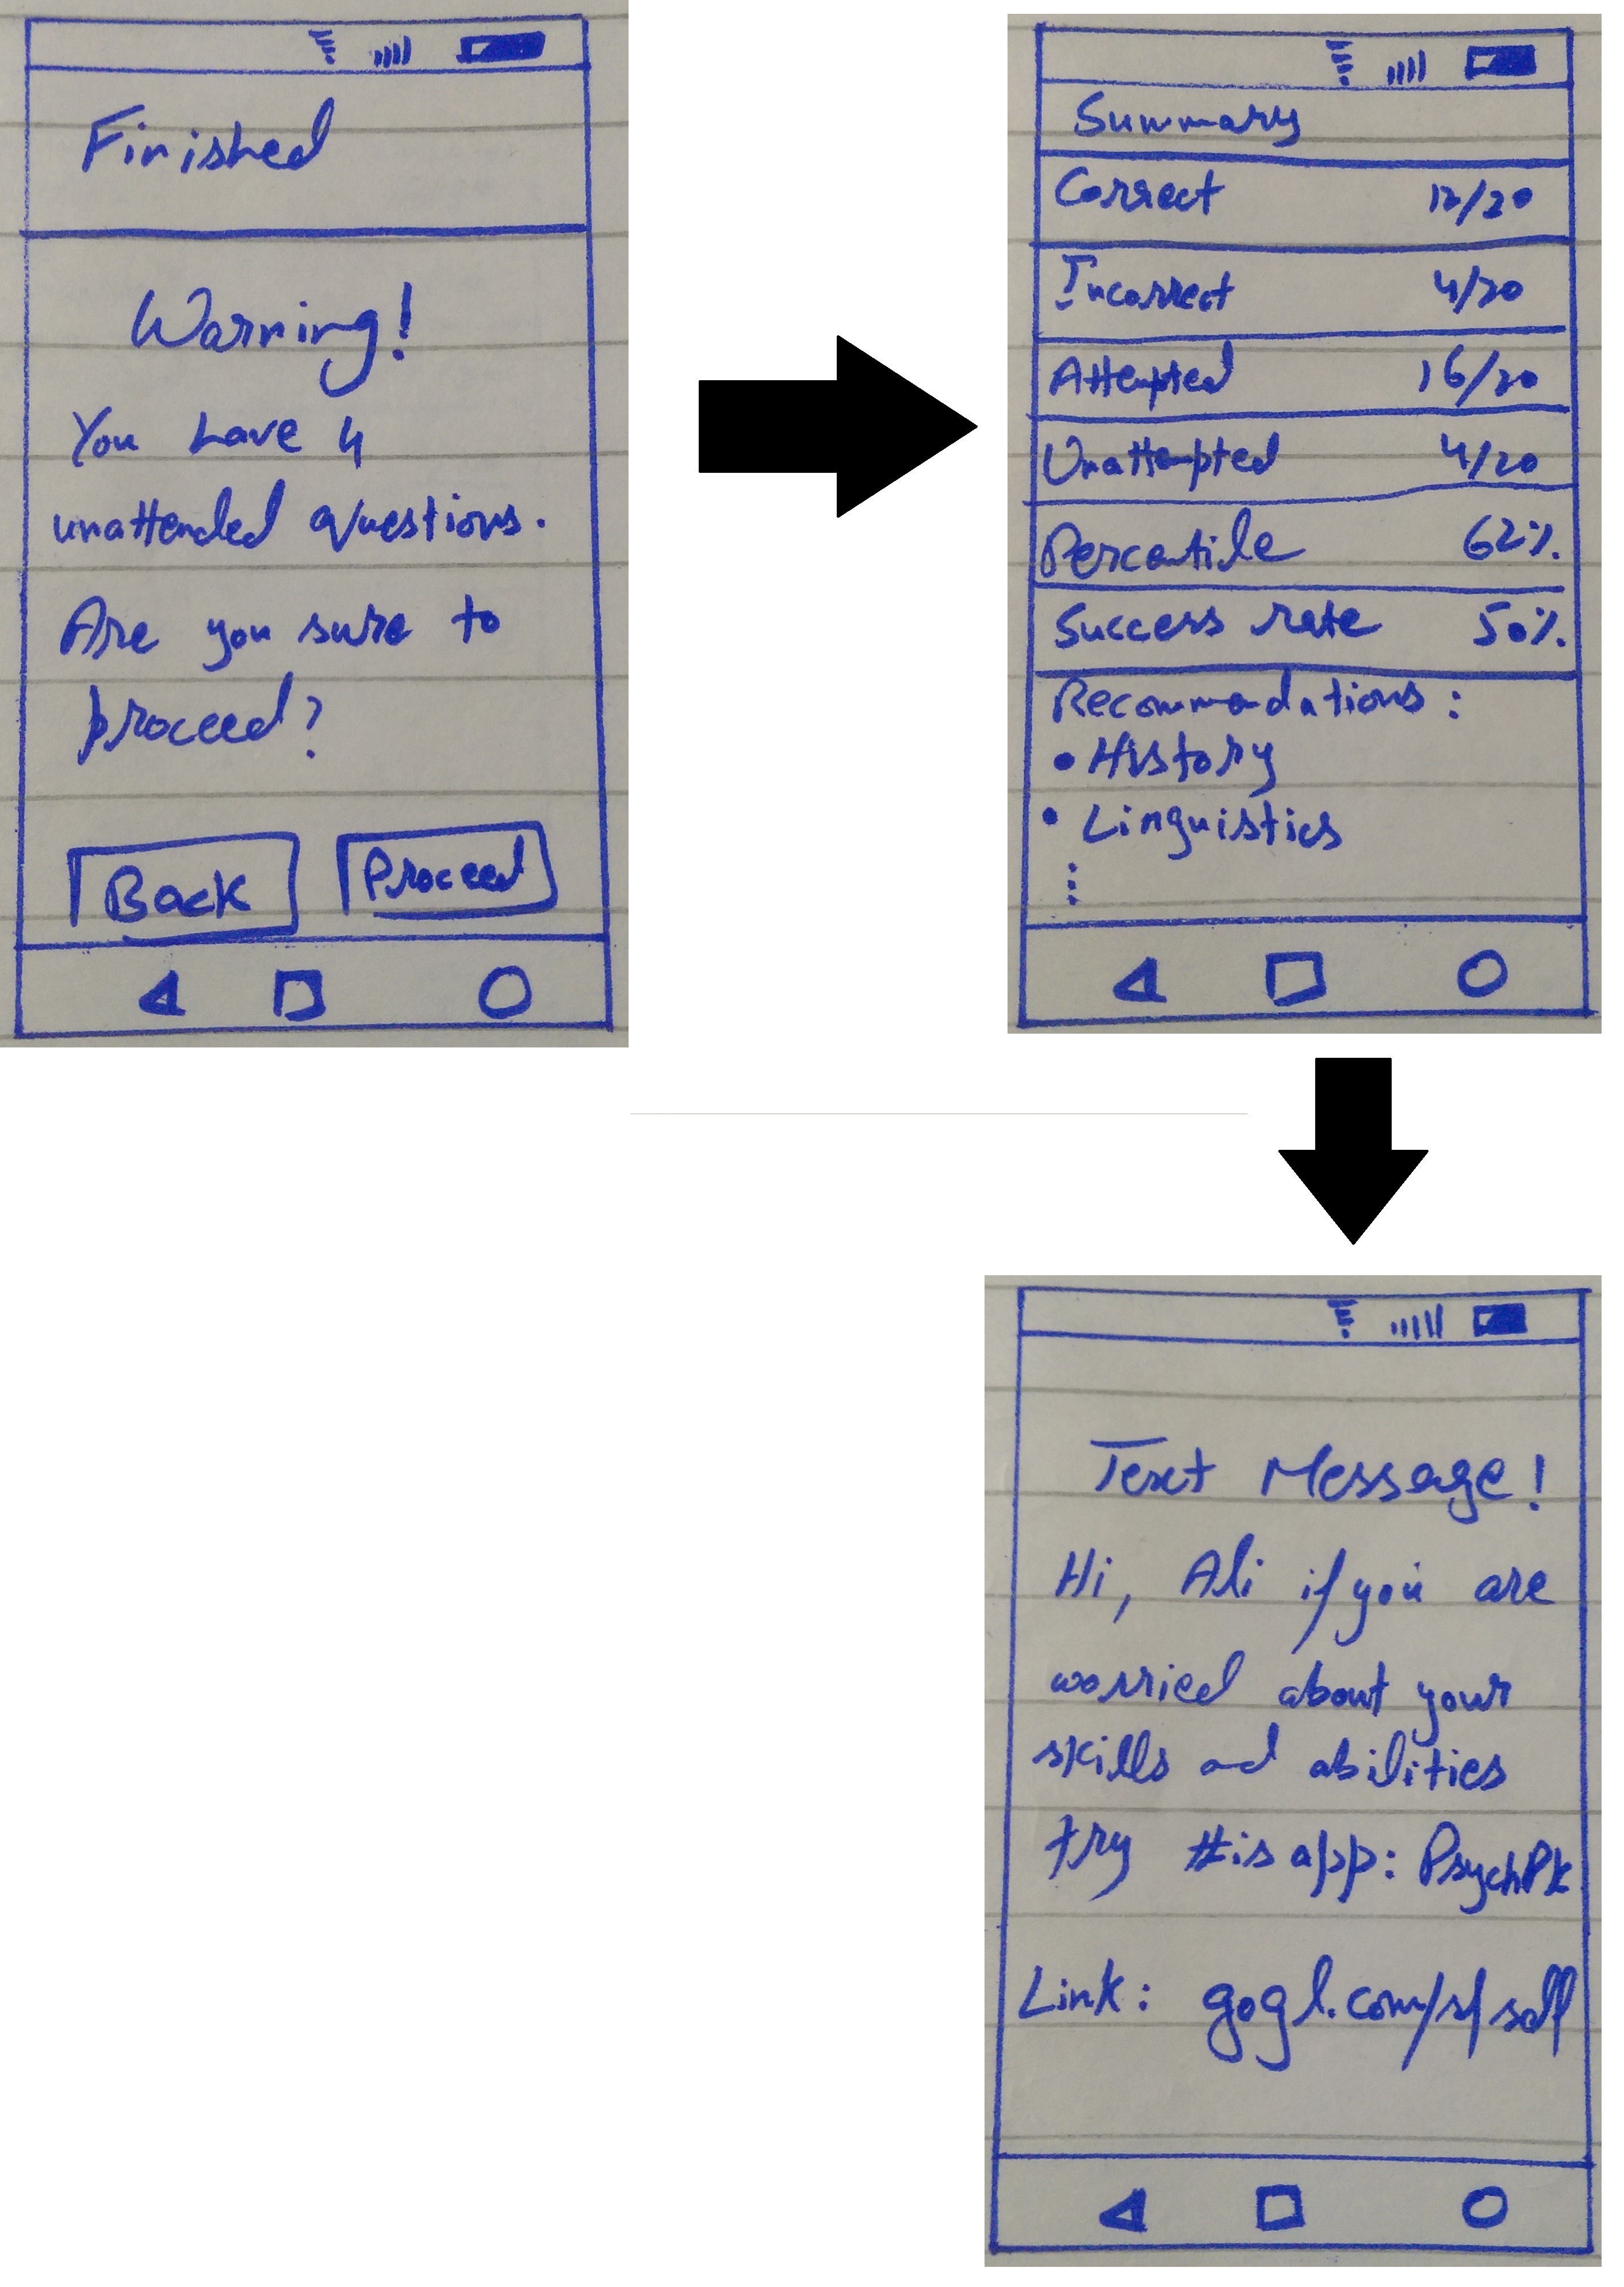 Finished
Warning!
You have 4
unattended questions.
Are you sure to
proceed?
Back Proceed
Summary
Correct 12/20
Incorrect 4/20
Attempted 16/20
Unattempted 4/20
Percentile 62%
Success rate 50%
Recommendations:
• History
• Linguistics
⋮
Text Message!
Hi, Ali if you are
worried about your
skills and abilities
try this app: PsychPk
Link: gogl.com/s/